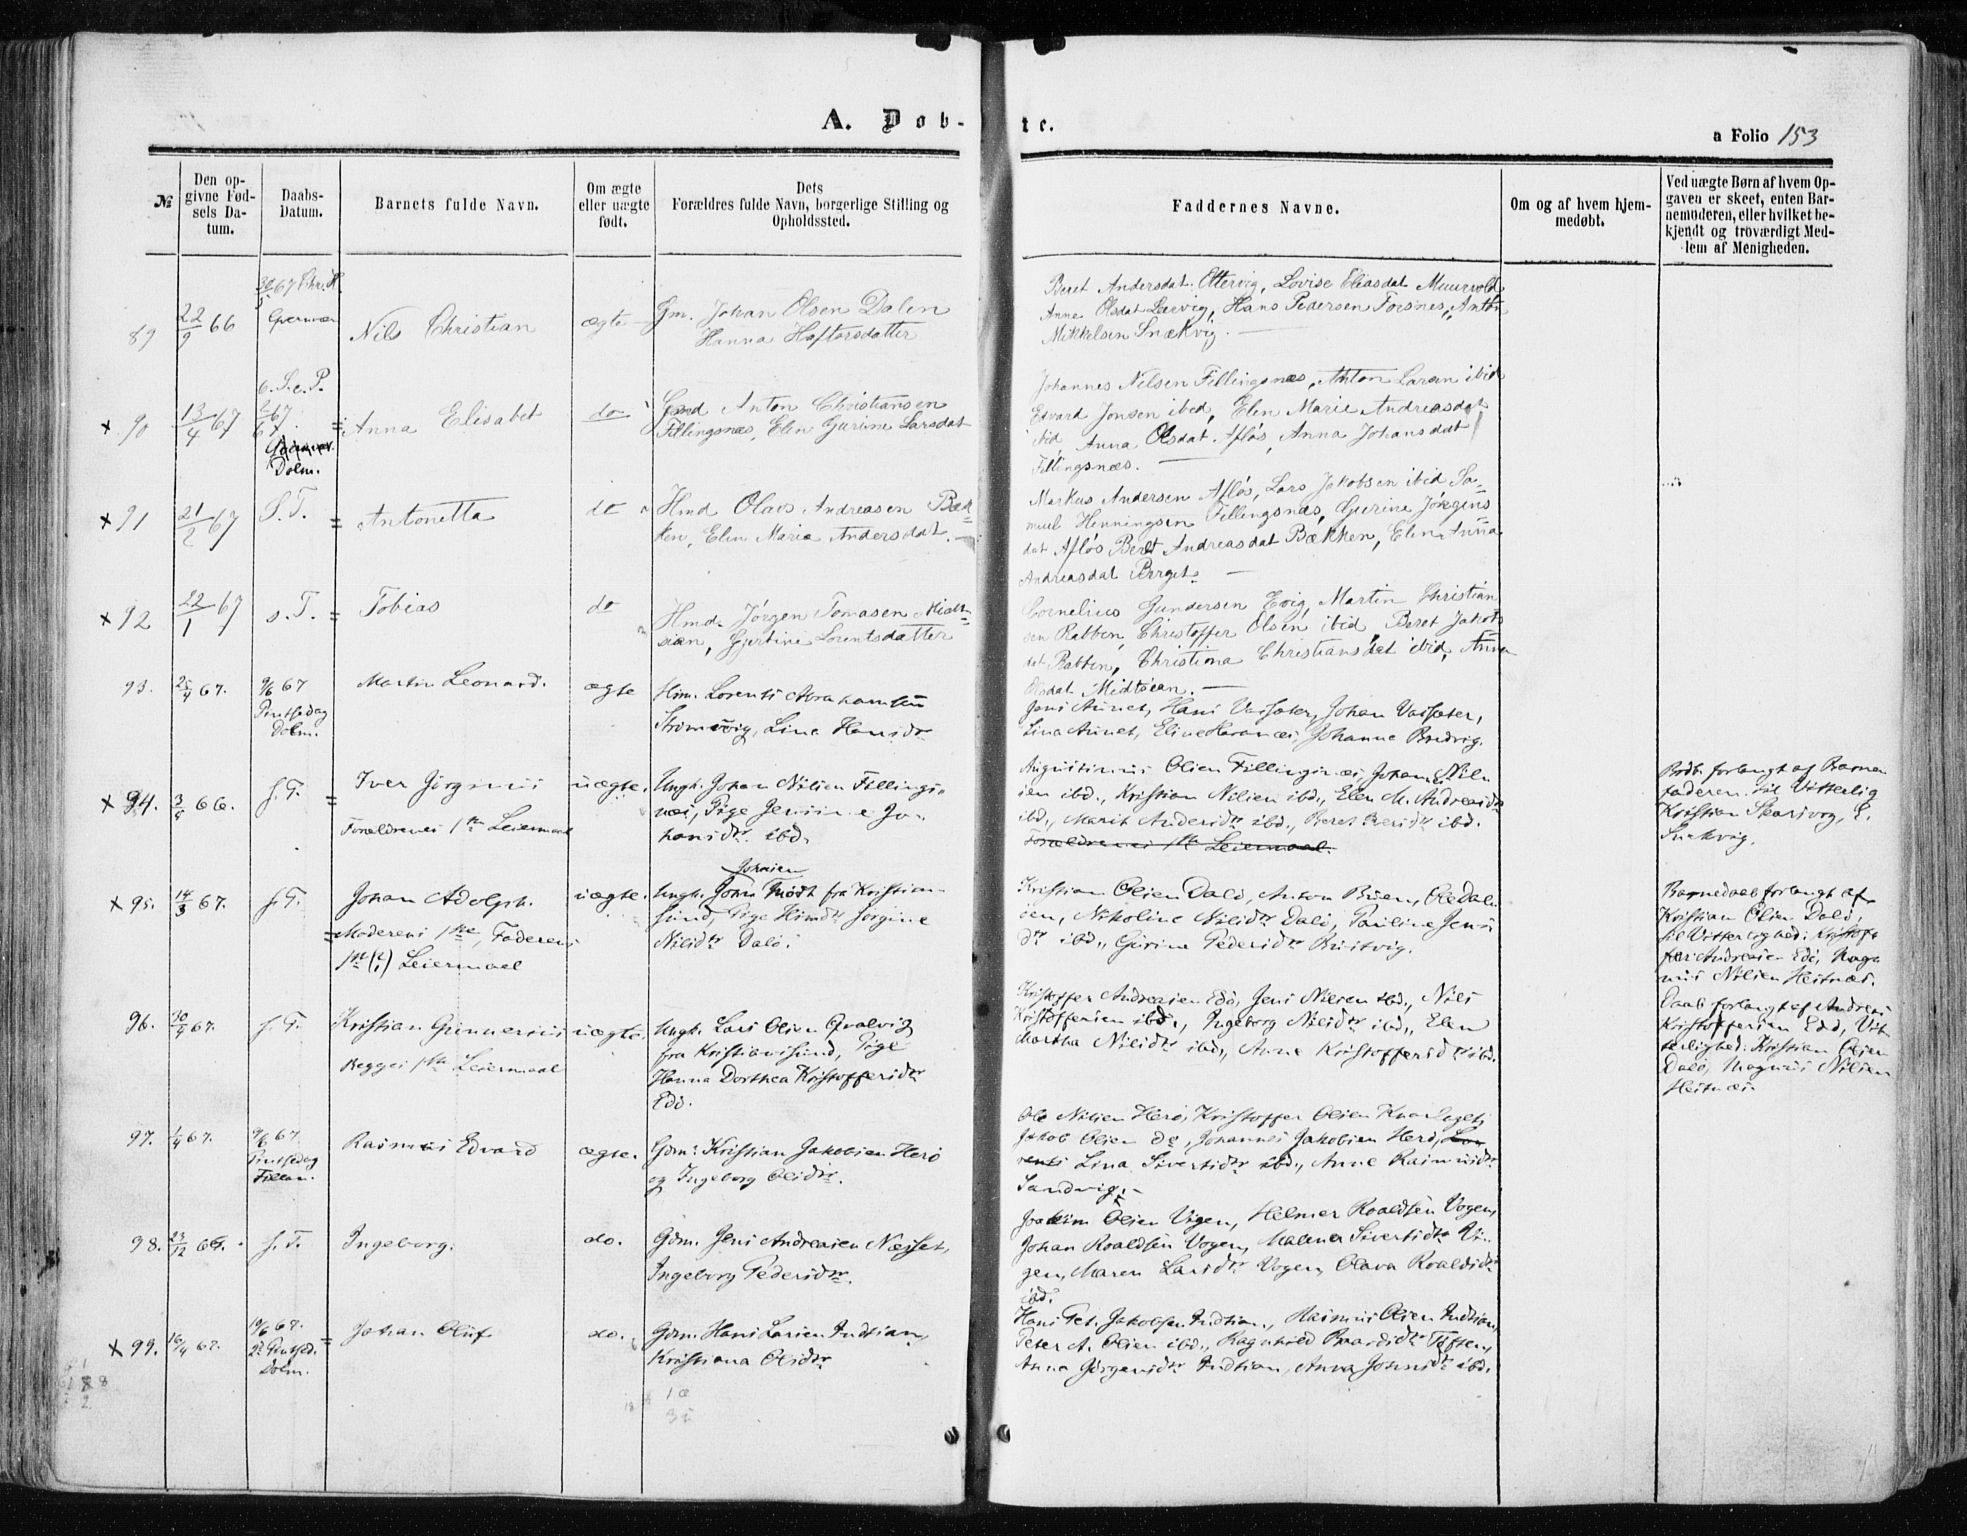 A. Døb-
te.
a Folio 153
№
Den op-
givne Fød-
sels Da-
tum.
Daabs-
Datum.
Barnets fulde Navn.
Om ægte
eller uægte
født.
Dets
Forældres fulde Navn, borgerlige Stilling og
Opholdssted.
Faddernes Navne.
Om og af hvem hjem-
medøbt.
Ved uægte Børn af hvem Op-
gaven er skeet, enten Bar-
nemoderen, eller hvilket be-
kjendt og troværdigt Med-
lem af Menigheden.
89
22/9 66
30/5 67 Chr. H.
Nils Christian
ægte
Gm. Johan Olsen Dalen
Hanna Haftorsdatter
Beret Andersdat. Ottervig, Lovise Eliasdat
Anne Olsdat Larvig, Hans Pedersen Forsnes, Anton
Mikkelsen Snækvig.
x 90
13/4 67
6. S. e. P.
Dolm.
Anna Elisabet
do
Anton Christiansen
Fillingsnæs, Elen Gurine Larsdat
Johannes Nilsen Fillingsnæs, Anton Larsen ibid
Edvard Jonsen ibed, Elen Marie Andreasdat
ibid, Anna Olsdat Afløs, Anna Johansdat
Fillingsnæs.
x 91
21/2 67
S. T.
Antonetta
do
Hmd Olaus Andreasen Bæk-
ken, Elen Maria Andersdat.
Markus Andersen Afløs, Lars Jakobsen ibid Sa-
muel Henningsen Fillingsnæs, Gurine Jørgins
dat Afløs Beret Andreasdat Bækken, Elen Anna
Andreasdat Berget.
x 92
22/1 67
s. T.
Tobias
do
Hmd. Jørgen Tomasen Midt-
sian, Gjertine Lorentsdatter
Cornelius Gundersen Evig, Martin Christian
sen Rabben, Christoffer Olsen ibid, Beret Jakobs
dat Rabben, Christiana Christiansdat ibid, Anna
Olsdat Midtsian.
93.
25/4 67.
9/6 67
Pintsedag
Dolm.
Martin Leonard.
ægte
Hm. Lorents Abrahamsen
Strømsvig, Line Hansdtr
Jens Aunet, Hans Vasseter, Johan Vasseter,
Lina Aunet, Eline, Johanne Bredvig.
x 94.
3/ 66.
s. T.
Iver Jørginus
Forældrenes 1ste Leiermaal
uægte.
Ungk. Johan Nilsen Fillings-
næs, Pige Jensine Jo-
hansdtr ibd.
Augustinus Olsen Fillingsnæs, Johannes Nil-
sen ibd., Kristian Nilsen ibd., Elen M. Andreasdtr
ibd., Marit Andersdtr ibd., Beret ibd.
Forældrenes 1ste Leiermaal.
forlangt af Barne
faderen. til Vitterlig
Kristian Skarsvog, E.
Snekvig.
x 95.
14/3 67.
s. T.
Johan Adolph.
Moderens 1ste, Faderens
1ste (?) Leiermaal
uægte.
Johnsen
Ungk. John fra Kristian-
sund, Pige Jørgine
Nilsdtr Dalø.
Kristian Olsen Dalø, Anton Olsen, Ole Dal-
øen, Nikoline Nilsdtr Dalø, Pauline Jens
dtr ibd., Gurine Pedersdtr Bustvig.
Barnedaab forlangt af
Kristian Olsen Dalø,
til Vitterlighed: Kristof-
fer Andreasen Edø, Mag-
nus Nilsen Heitnæs.
96.
30/ 67.
s. T.
Kristian Gunnerius
Begges 1ste Leiermaal
uægte.
Ungk. Lars Olsen Qvalvig
fra Kristiansund, Pige
Hanna Dorthea Kristoffersdtr
Edø.
Kristoffer Andreasen Edø, Jens Nilsen ibd., Nils
Kristoffersen ibd., Ingeborg Nilsdtr ibd., Elen
Martha Nilsdtr ibd., Anne Kristoffersdtr ibd.
Daab forlangt af Andreas
Kristoffersen Edø, Vit-
terlighed: Kristian Olsen
Dalø, Magnus Nilsen
Heitnæs.
97.
1/4 67.
9/6 67.
Pintsedag
Fillan.
Rasmus Edvard
ægte.
Gdm. Kristian Jakobsen Herø
og Ingeborg Olsdtr.
Ole Nilsen Herø, Kristoffer Olsen
Jakob Olsen do, Johannes Jakobsen Herø, Lau-
rents Lina Sivertsdtr ibd., Anne Rasmusdtr
Sandvig.
98.
23/12 66.
s. T.
Ingeborg.
do.
Gdm. Jens Andreasen Næsset,
Ingeborg Pedersdtr.
Joakim Olsen Vigen, Helmer Roaldsen Vogen,
Johan Roaldsen Vogen, Malena Sivertsdtr Vi-
gen, Maren Larsdtr Vogen, Olava Roaldsdtr
ibd.
x 99.
16/4 67.
10/6 67.
2. Pintsed.
Dolm.
Johan Oluf
do.
Gdm. Hans Larsen Indsian,
Kristiana Olsdtr
Hans Pet. Jakobsen Indsian, Rasmus Olsen Indsian,
Peter A. Olsen ibd., Ragnhild Baardsdtr Tøften,
Anna Jørgensdtr Indsian, Anna Johnsdtr ibd.